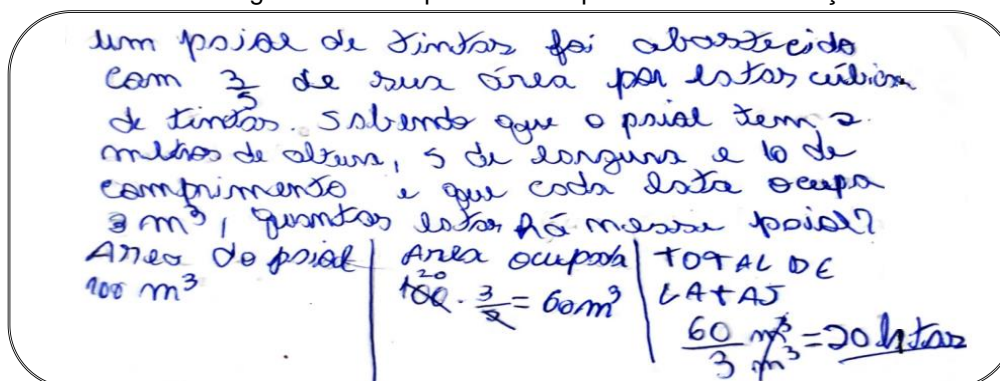 um paiol de tintas foi abastecido
com 3/5 de sua área por latas cúbicas
de tintas. Sabendo que o paiol tem 2
metros de altura, 5 de largura e 10 de
comprimento e que cada lata ocupa
3 m³, quantas latas há nesse paiol?
Area do paiol | Area ocupada | TOTAL DE
100 m³ | 20 100 · 3/5 = 60m³ | LATAS
60 m³/3 m³ = 20 latas